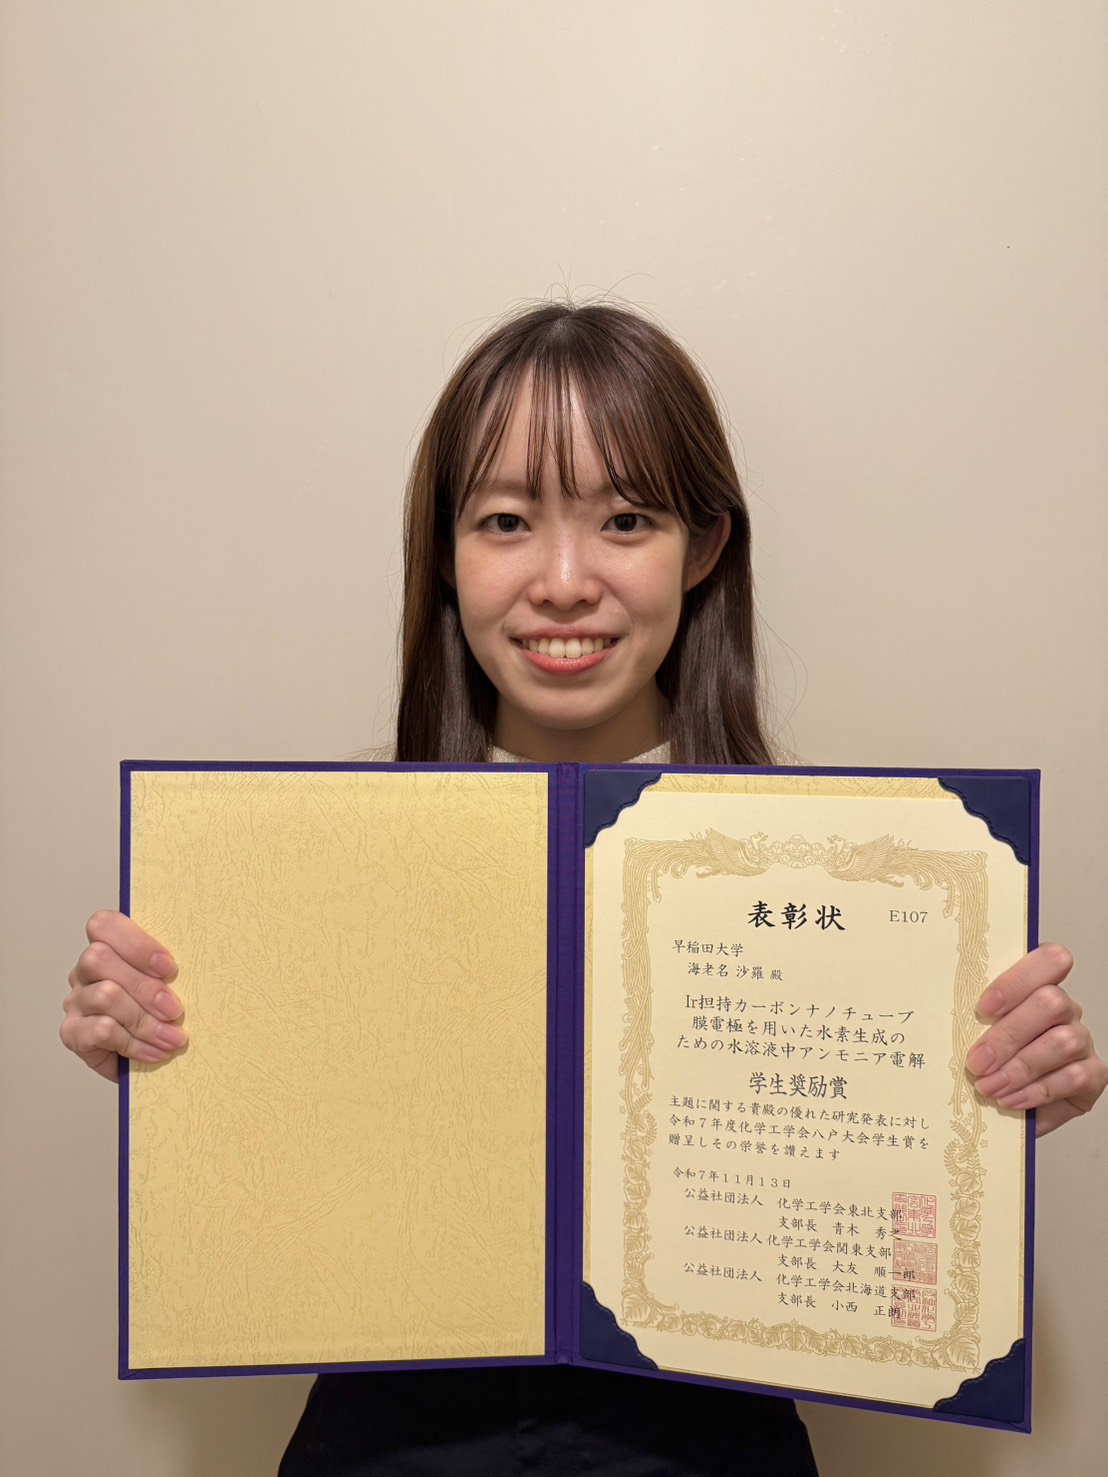 表彰状 E107
早稲田大学
海老名 沙羅 殿
Ir担持カーボンナノチューブ
膜電極を用いた水素生成の
ための水溶液中アンモニア電解
学生奨励賞
主題に関する貴殿の優れた研究発表に対し
令和7年度化学工学会八戸大会学生賞を
贈呈しその栄誉を讃えます
令和7年11月13日
公益社団法人 化学工学会東北支部
支部長 青木 秀之
公益社団法人 化学工学会関東支部
支部長 大友 順一郎
公益社団法人 化学工学会北海道支部
支部長 小西 正朗